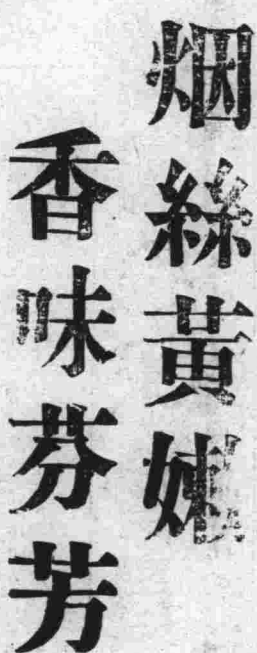 烟絲黃嫩
香味芬芳